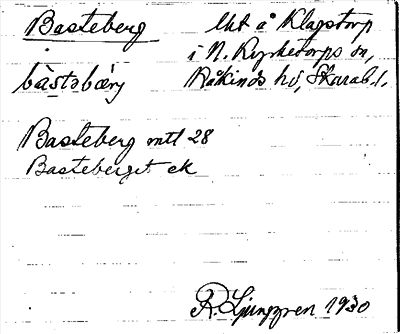 Basteberg
lht å Klagstorp
i N. Kyrketorps sn,
bàstəbærj
Kåkinds hd, Skarab. l.
Basteberg mtl 28
Basteberget ek
R. Ljunggren 1930